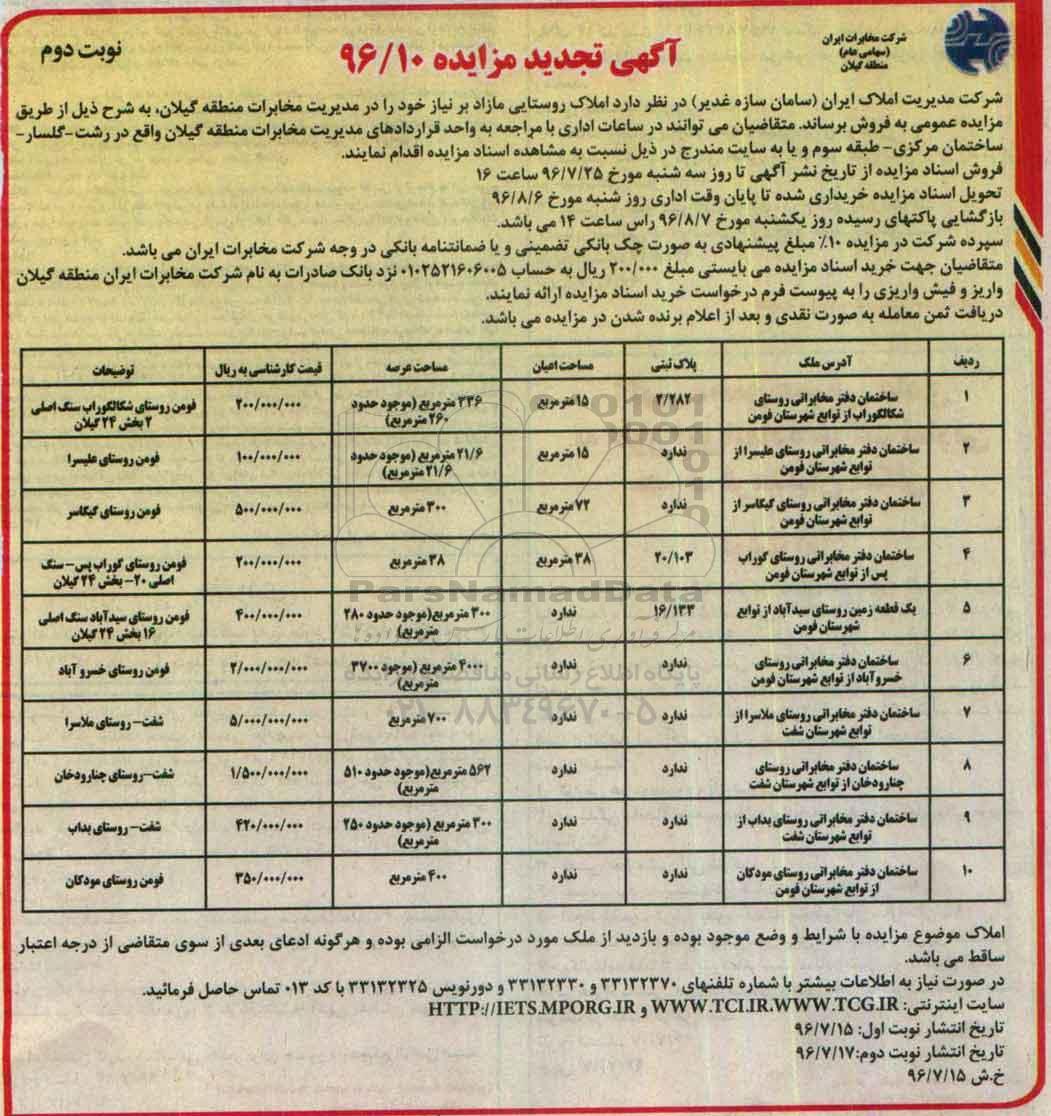 شرکت مخابرات ایران
(سهامی عام)
منطقه گیلان
آگهی تجدید مزایده ۹۶/۱۰
نوبت دوم
شرکت مدیریت املاک ایران (سامان سازه غدیر) در نظر دارد املاک روستایی مازاد بر نیاز خود را در مدیریت مخابرات منطقه گیلان، به شرح ذیل از طریق
مزایده عمومی به فروش برساند. متقاضیان می توانند در ساعات اداری با مراجعه به واحد قراردادهای مدیریت مخابرات منطقه گیلان واقع در رشت-گلسار-
ساختمان مرکزی- طبقه سوم و یا به سایت مندرج در ذیل نسبت به مشاهده اسناد مزایده اقدام نمایند.
فروش اسناد مزایده از تاریخ نشر آگهی تا روز سه شنبه مورخ ۹۶/۷/۲۵ ساعت ۱۶
تحویل اسناد مزایده خریداری شده تا پایان وقت اداری روز شنبه مورخ ۹۶/۸/۶
بازگشایی پاکتهای رسیده روز یکشنبه مورخ ۹۶/۸/۷ راس ساعت ۱۴ می باشد.
سپرده شرکت در مزایده ۱۰٪ مبلغ پیشنهادی به صورت چک بانکی تضمینی و یا ضمانتنامه بانکی در وجه شرکت مخابرات ایران می باشد.
متقاضیان جهت خرید اسناد مزایده می بایستی مبلغ ۲۰۰/۰۰۰ ریال به حساب ۰۱۰۲۵۲۱۶۰۶۰۰۵ نزد بانک صادرات به نام شرکت مخابرات ایران منطقه گیلان
واریز و فیش واریزی را به پیوست فرم درخواست خرید اسناد مزایده ارائه نمایند.
دریافت ثمن معامله به صورت نقدی و بعد از اعلام برنده شدن در مزایده می باشد.
ردیف آدرس ملک پلاک ثبتی مساحت اعیان مساحت عرصه قیمت کارشناسی به ریال توضیحات
۱ ساختمان دفتر مخابراتی روستای ۲/۲۸۲ ۱۵ مترمربع ۳۳۶ مترمربع (موجود حدود ۲۰۰/۰۰۰/۰۰۰ فومن روستای شکالگوراب سنگ اصلی
شکالگوراب از توابع شهرستان فومن ۲۶۰ مترمربع) ۲ بخش ۲۴ گیلان
۲ ساختمان دفتر مخابراتی روستای علیسرا از ندارد ۱۵ مترمربع ۲۱/۶ مترمربع (موجود حدود ۱۰۰/۰۰۰/۰۰۰ فومن روستای علیسرا
توابع شهرستان فومن ۲۱/۶ مترمربع)
۳ ساختمان دفتر مخابراتی روستای گیگاسر از ندارد ۷۲ مترمربع ۳۰۰ مترمربع ۵۰۰/۰۰۰/۰۰۰ فومن روستای گیگاسر
توابع شهرستان فومن
۴ ساختمان دفتر مخابراتی روستای گوراب ۲۰/۱۰۳ ۳۸ مترمربع ۳۸ مترمربع ۲۰۰/۰۰۰/۰۰۰ فومن روستای گوراب پس- سنگ
پس از توابع شهرستان فومن اصلی ۲۰- بخش ۲۴ گیلان
۵ یک قطعه زمین روستای سیدآباد از توابع ۱۶/۱۳۳ ندارد ۳۰۰ مترمربع(موجود حدود ۲۸۰ ۴۰۰/۰۰۰/۰۰۰ فومن روستای سیدآباد سنگ اصلی
شهرستان فومن مترمربع) ۱۶ بخش ۲۴ گیلان
۶ ساختمان دفتر مخابراتی روستای ندارد ندارد ۴۰۰۰ مترمربع (موجود ۳۷۰۰ ۲/۰۰۰/۰۰۰/۰۰۰ فومن روستای خسرو آباد
خسروآباد از توابع شهرستان فومن مترمربع)
۷ ساختمان دفتر مخابراتی روستای ملاسرا از ندارد ندارد ۷۰۰ مترمربع ۵/۰۰۰/۰۰۰/۰۰۰ شفت- روستای ملاسرا
توابع شهرستان شفت
۸ ساختمان دفتر مخابراتی روستای ندارد ندارد ۵۶۲ مترمربع(موجود حدود ۵۱۰ ۱/۵۰۰/۰۰۰/۰۰۰ شفت-روستای چنارودخان
چنارودخان از توابع شهرستان شفت مترمربع)
۹ ساختمان دفتر مخابراتی روستای بداب از ندارد ندارد ۳۰۰ مترمربع (موجود حدود ۲۵۰ ۴۲۰/۰۰۰/۰۰۰ شفت- روستای بداب
توابع شهرستان شفت مترمربع)
۱۰ ساختمان دفتر مخابراتی روستای مودگان ندارد ندارد ۴۰۰ مترمربع ۳۵۰/۰۰۰/۰۰۰ فومن روستای مودگان
از توابع شهرستان فومن
ParsNamadData
پایگاه اطلاع رسانی مناقصه و مزایده
۰۲۱-۸۸۳۴۹۶۷۰-۵
املاک موضوع مزایده با شرایط و وضع موجود بوده و بازدید از ملک مورد درخواست الزامی بوده و هرگونه ادعای بعدی از سوی متقاضی از درجه اعتبار
ساقط می باشد.
در صورت نیاز به اطلاعات بیشتر با شماره تلفنهای ۳۳۱۳۲۳۷۰ و ۳۳۱۳۲۳۳۰ و دورنویس ۳۳۱۳۲۳۲۵ با کد ۰۱۳ تماس حاصل فرمائید.
سایت اینترنتی: WWW.TCI.IR.WWW.TCG.IR و HTTP://IETS.MPORG.IR
تاریخ انتشار نوبت اول: ۹۶/۷/۱۵
تاریخ انتشار نوبت دوم:۹۶/۷/۱۷
خ.ش ۹۶/۷/۱۵